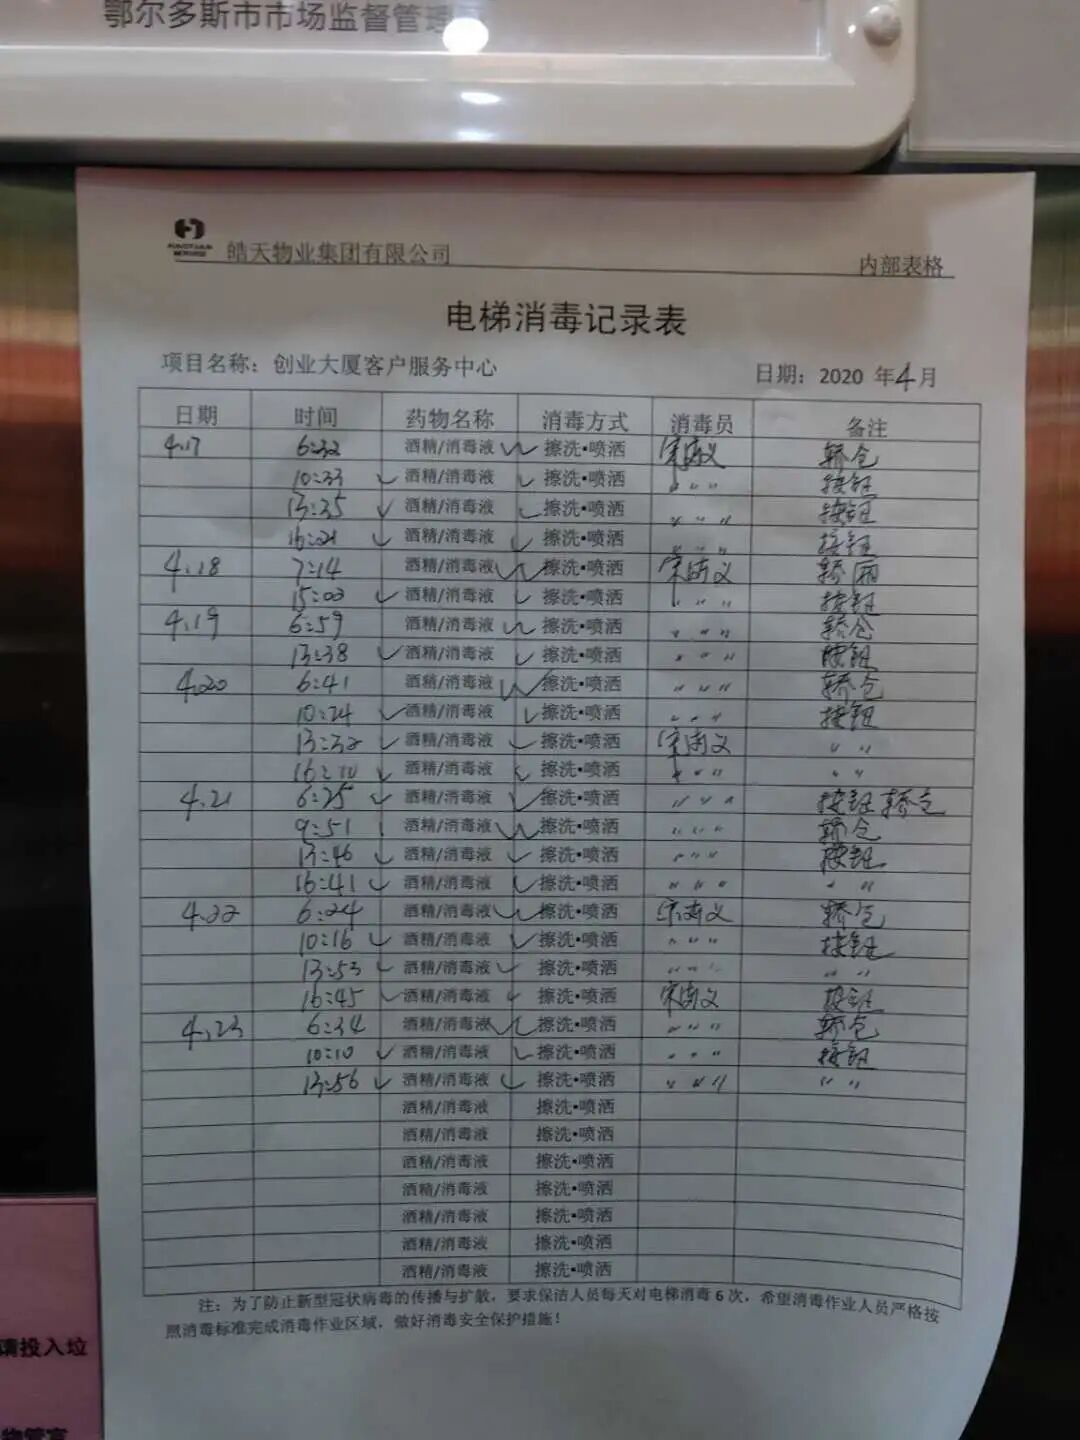 鄂尔多斯市市场监督管理
皓天物业集团有限公司 内部表格
电梯消毒记录表
项目名称：创业大厦客户服务中心 日期：2020 年4月
日期 时间 药物名称 消毒方式 消毒员 备注
4.17 6:32 酒精/消毒液 擦洗•喷洒 轿仓
10:33 酒精/消毒液 擦洗•喷洒 〃 〃 〃 按钮
13:35 酒精/消毒液 擦洗•喷洒 〃 〃 〃 按钮
16:21 酒精/消毒液 擦洗•喷洒 〃 〃 〃 按钮
4.18 7:14 酒精/消毒液 擦洗•喷洒 轿厢
15:02 酒精/消毒液 擦洗•喷洒 〃 〃 〃 按钮
4.19 6:59 酒精/消毒液 擦洗•喷洒 〃 〃 〃 轿仓
13:38 酒精/消毒液 擦洗•喷洒 〃 〃 〃 按钮
4.20 6:41 酒精/消毒液 擦洗•喷洒 〃 〃 〃 轿仓
10:24 酒精/消毒液 擦洗•喷洒 〃 〃 〃 按钮
13:32 酒精/消毒液 擦洗•喷洒 〃 〃
酒精/消毒液 擦洗•喷洒 〃 〃 〃 〃 〃
4.21 6:25 酒精/消毒液 擦洗•喷洒 〃 〃 〃 按钮 轿仓
9:51 酒精/消毒液 擦洗•喷洒 〃 〃 〃 轿仓
13:46 酒精/消毒液 擦洗•喷洒 〃 〃 〃 按钮
16:41 酒精/消毒液 擦洗•喷洒 〃 〃 〃 〃 〃
4.22 6:24 酒精/消毒液 擦洗•喷洒 轿仓
10:16 酒精/消毒液 擦洗•喷洒 〃 〃 〃 按钮
13:53 酒精/消毒液 擦洗•喷洒 〃 〃 〃 〃 〃
16:45 酒精/消毒液 擦洗•喷洒 按钮
4.23 6:34 酒精/消毒液 擦洗•喷洒 〃 〃 〃 轿仓
10:10 酒精/消毒液 擦洗•喷洒 〃 〃 〃 按钮
13:56 酒精/消毒液 擦洗•喷洒 〃 〃 〃 〃 〃
酒精/消毒液 擦洗•喷洒
酒精/消毒液 擦洗•喷洒
酒精/消毒液 擦洗•喷洒
酒精/消毒液 擦洗•喷洒
酒精/消毒液 擦洗•喷洒
酒精/消毒液 擦洗•喷洒
酒精/消毒液 擦洗•喷洒
注：为了防止新型冠状病毒的传播与扩散，要求保洁人员每天对电梯消毒 6 次，希望消毒作业人员严格按
照消毒标准完成消毒作业区域，做好消毒安全保护措施！
请投入垃
物管宣